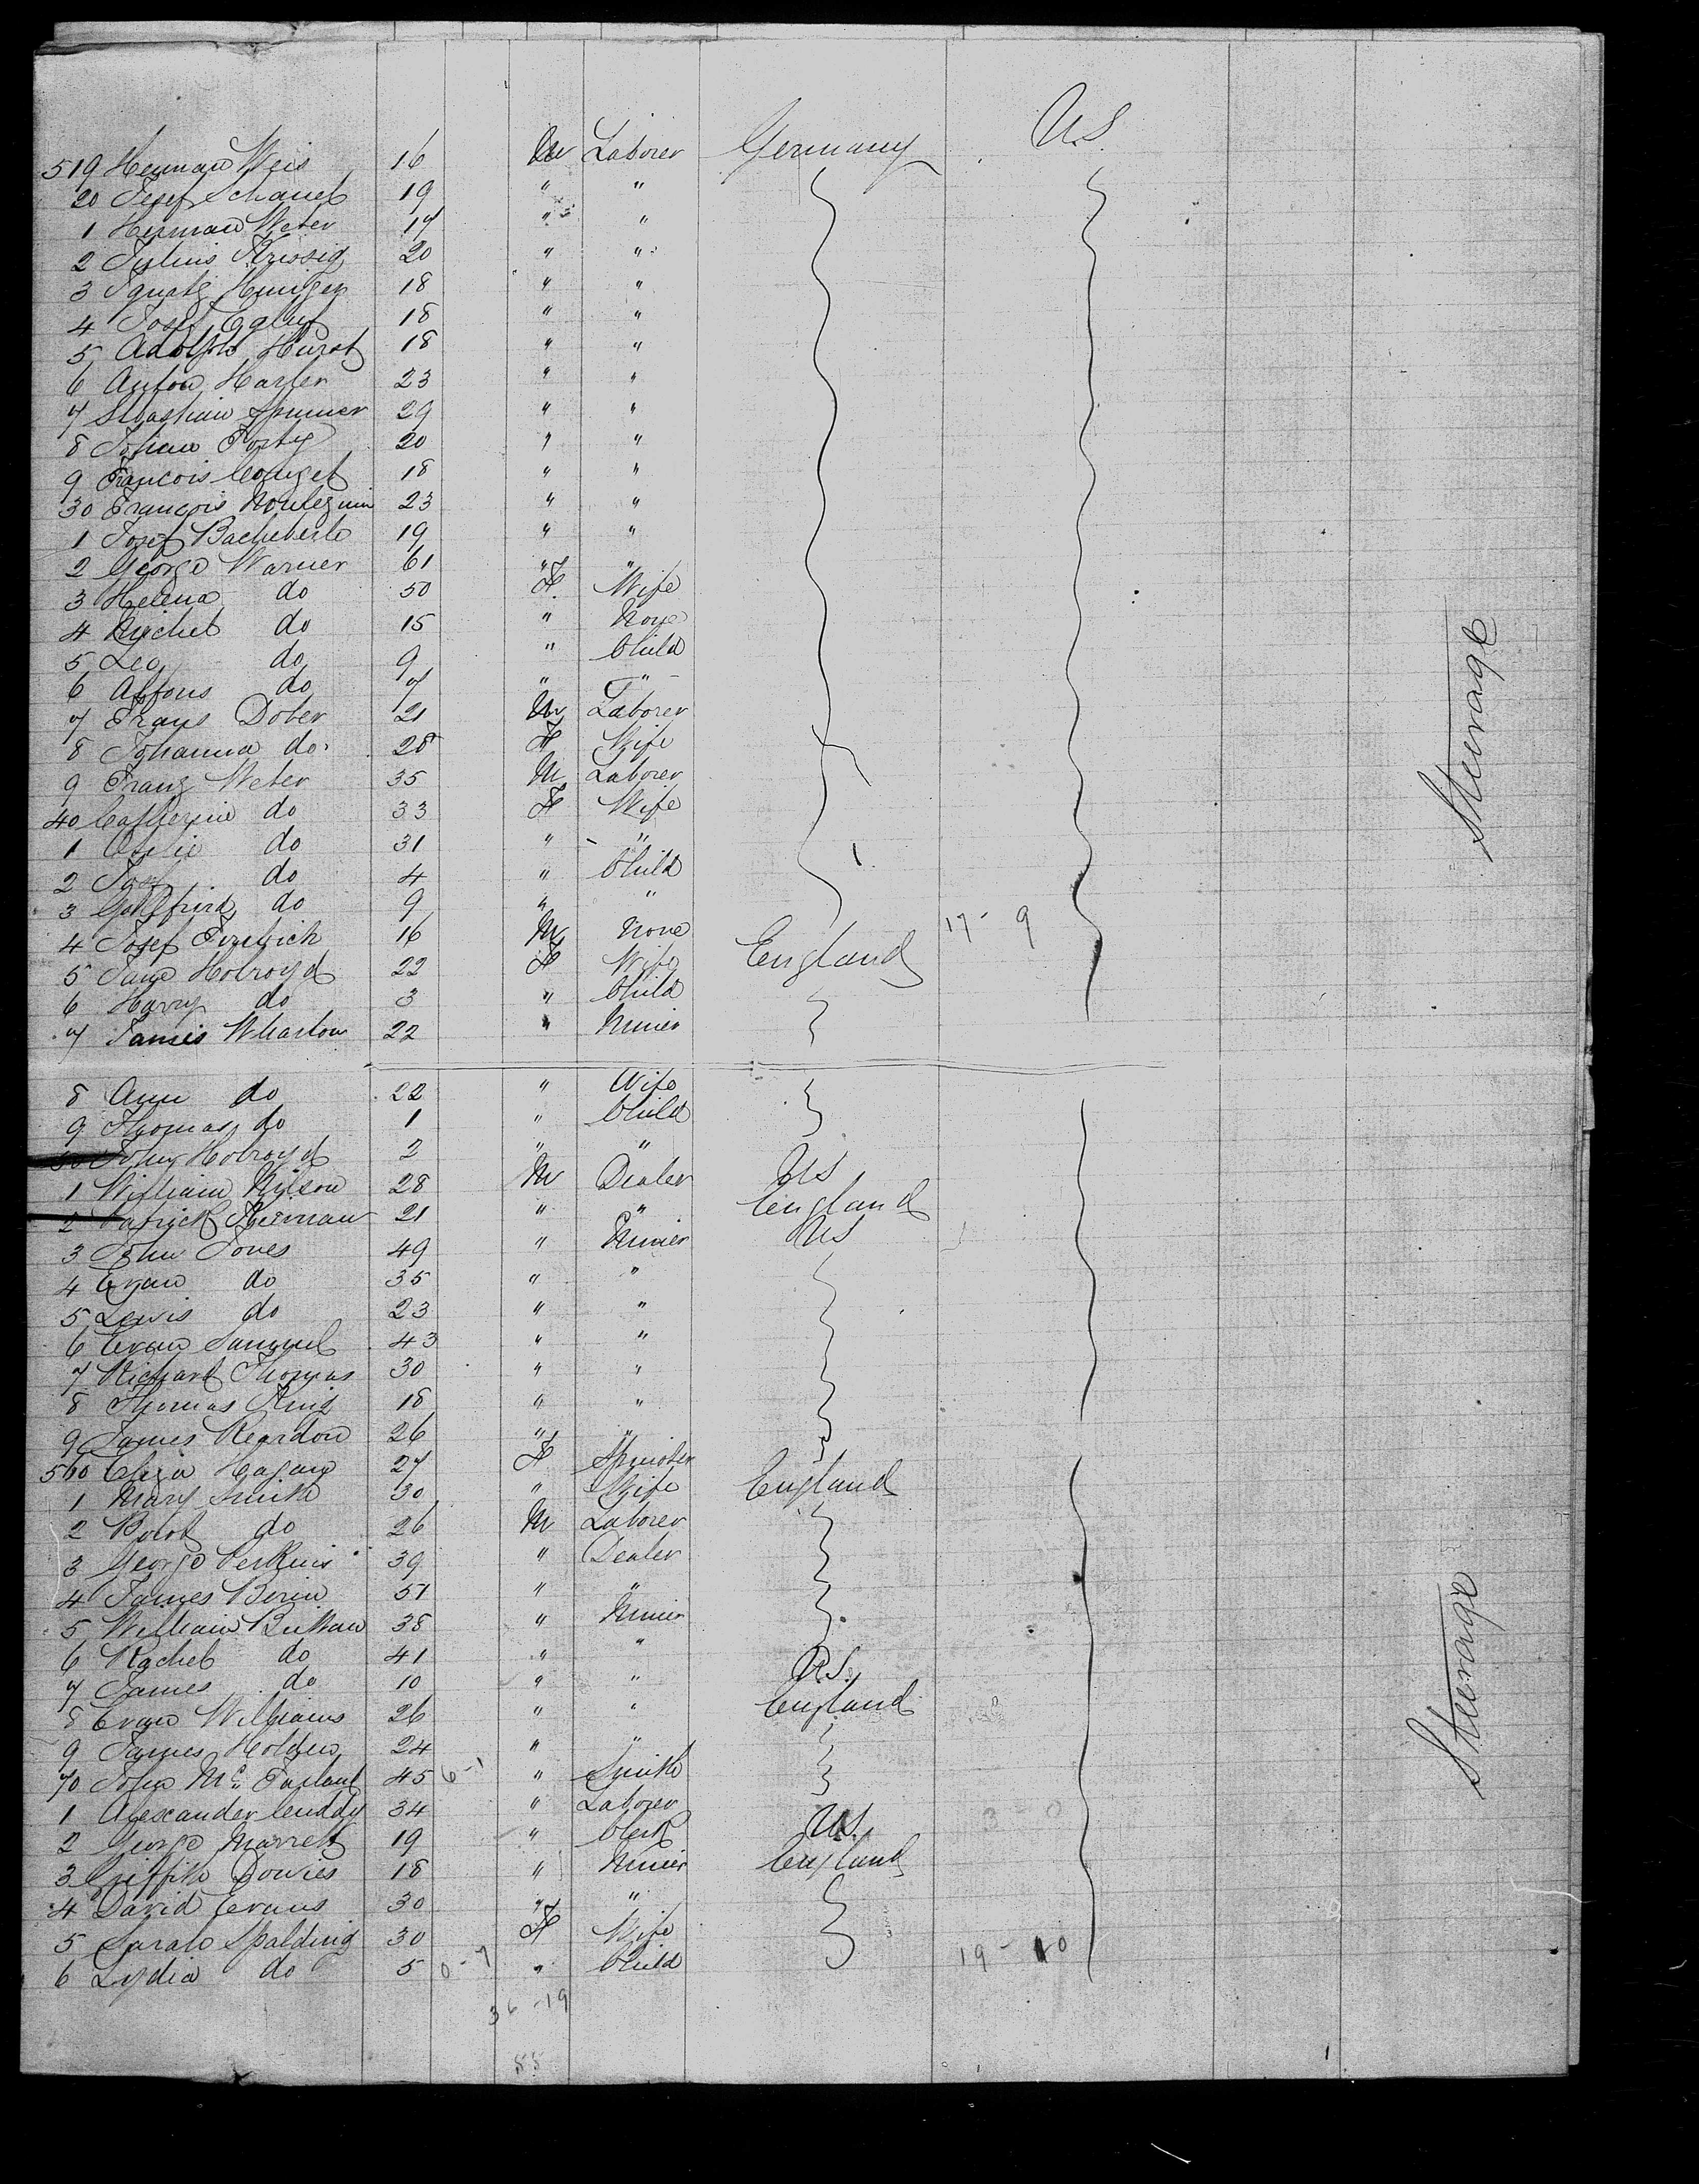 519 Herman Weis 16 M Laborer Germany U.S.
20 Josef Schaueb 19 " "
1 Herman Weber 17 " "
2 Julius Krissig 20 " "
3 Ignatz 18 " "
4 Josef 18 " "
5 Adolph Hurst 18 " "
6 Anton Harter 23 " "
7 Sebastian 29 " "
8 Johan 20 " "
9 Francois 18 " "
30 François 23 " "
1 Josef Bacheberle 19 " "
2 George Warner 61 " "
3 Helena do 50 F. Wife
4 Michel do 15 " None
5 Leo do 9 " Child
6 Alfons do 7 " "
7 Frans Dober 21 M Laborer
8 Johanna do. 28 F Wife
9 Franz Weber 35 M Laborer
40 Catherine do 33 F Wife
1 do 31 " "
2 Josef do 4 " Child
3 Gottfried do 9 " "
4 Josef 16 M None 17 - 9
5 Jane Holroyd 22 F Wife England
6 Harry do 3 " Child
7 James Wharton 22 " Miner
8 Ann do 22 " Wife
9 Thomas do 1 " Child
50 John Holroyd 2 " "
1 William Wilson 28 M Dealer US
2 Patrick Kiernan 21 " " England
3 John Jones 49 " Miner US
4 Evan do 35 " "
5 Lewis do 23 " "
6 Evan Samuel 43 " "
7 Richard Thomas 30 " "
8 Thomas King 18 " "
9 James Reardon 26 " "
560 Eliza Hagan 27 F Spinster England
1 Mary Smith 30 " Wife
2 Robt do 26 M Laborer
3 George Perkins 39 " Dealer
4 James 51 " "
5 William 38 " Miner
6 Rachel do 41 " "
7 James do 10 " " U.S.
8 Evan Williams 26 " " England
9 James Holden 24 " "
70 John Mc. Farland 45 6-1 " Smith
1 Alexander Cuddy 34 " Laborer 3 - 0
2 George Marrett 19 " Clerk U.S.
3 Griffith Davies 18 " Miner England
4 David Evans 30 " "
5 Sarah Spalding 30 F Wife
6 Lydia do 5 0-7 " Child 19 - 10
36 - 19
55
Steerage
Steerage